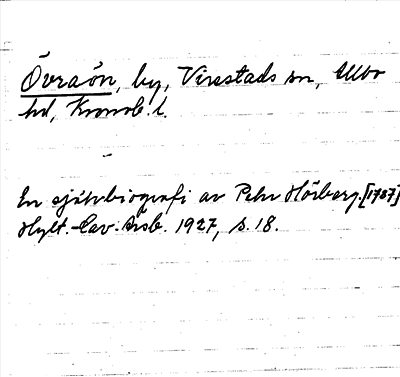 Övraön, by, Virestads sn, Allbo
hd, Kronob. l.
En självbiografi av Pehr Hörberg. [1787]
Hylt.-Cav. årsb. 1927, s. 18.